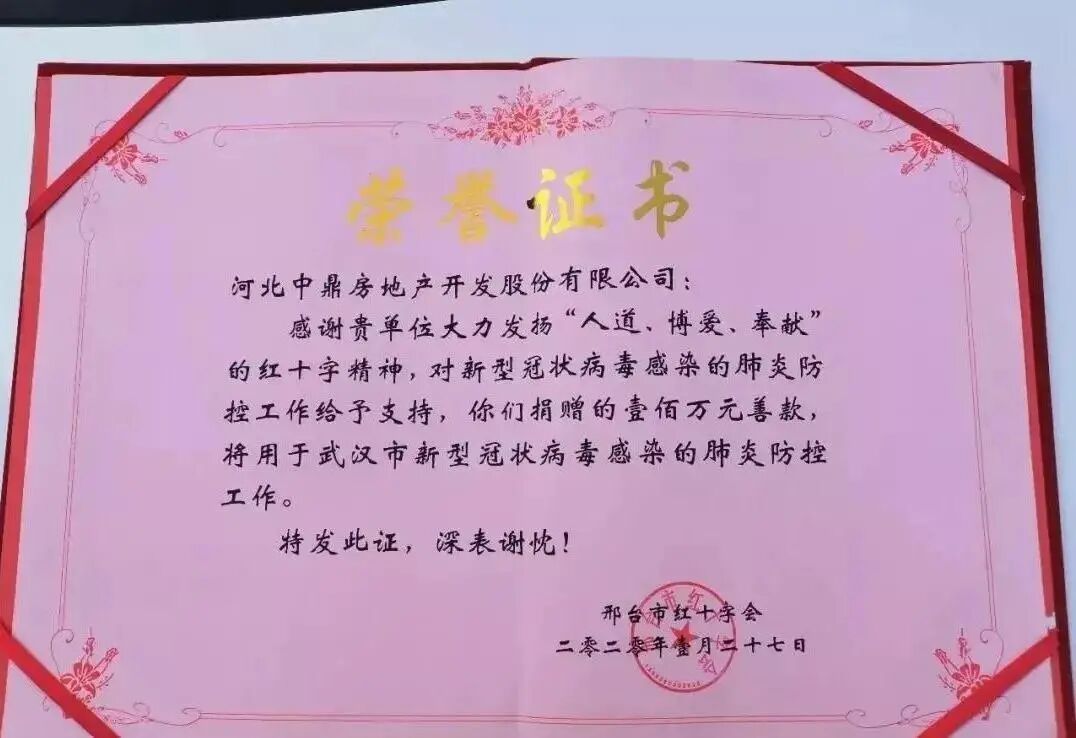 荣誉证书
河北中鼎房地产开发股份有限公司：
感谢贵单位大力发扬“人道、博爱、奉献”
的红十字精神，对新型冠状病毒感染的肺炎防
控工作给予支持，你们捐赠的壹佰万元善款，
将用于武汉市新型冠状病毒感染的肺炎防控
工作。
特发此证，深表谢忱！
邢台市红十字会
二零二零年壹月二十七日